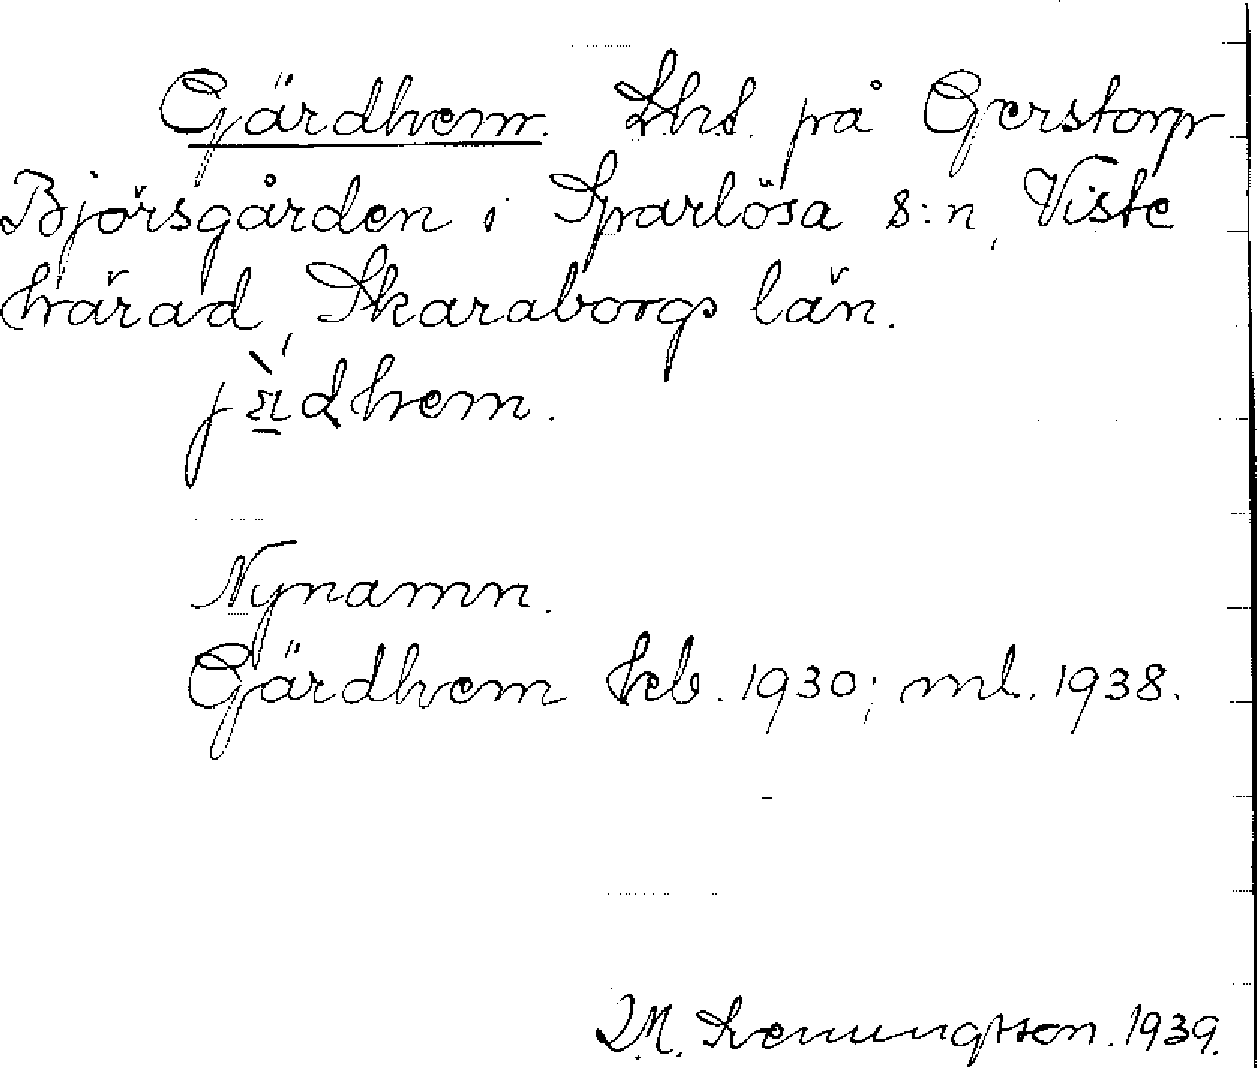 Gärdhem. Lht. på Gerstorp
Björsgården i Sparlösa s:n, Viste
härad, Skaraborgs län.
Nynamn.
Gärdhem hcb. 1930; ml. 1938.
1939.